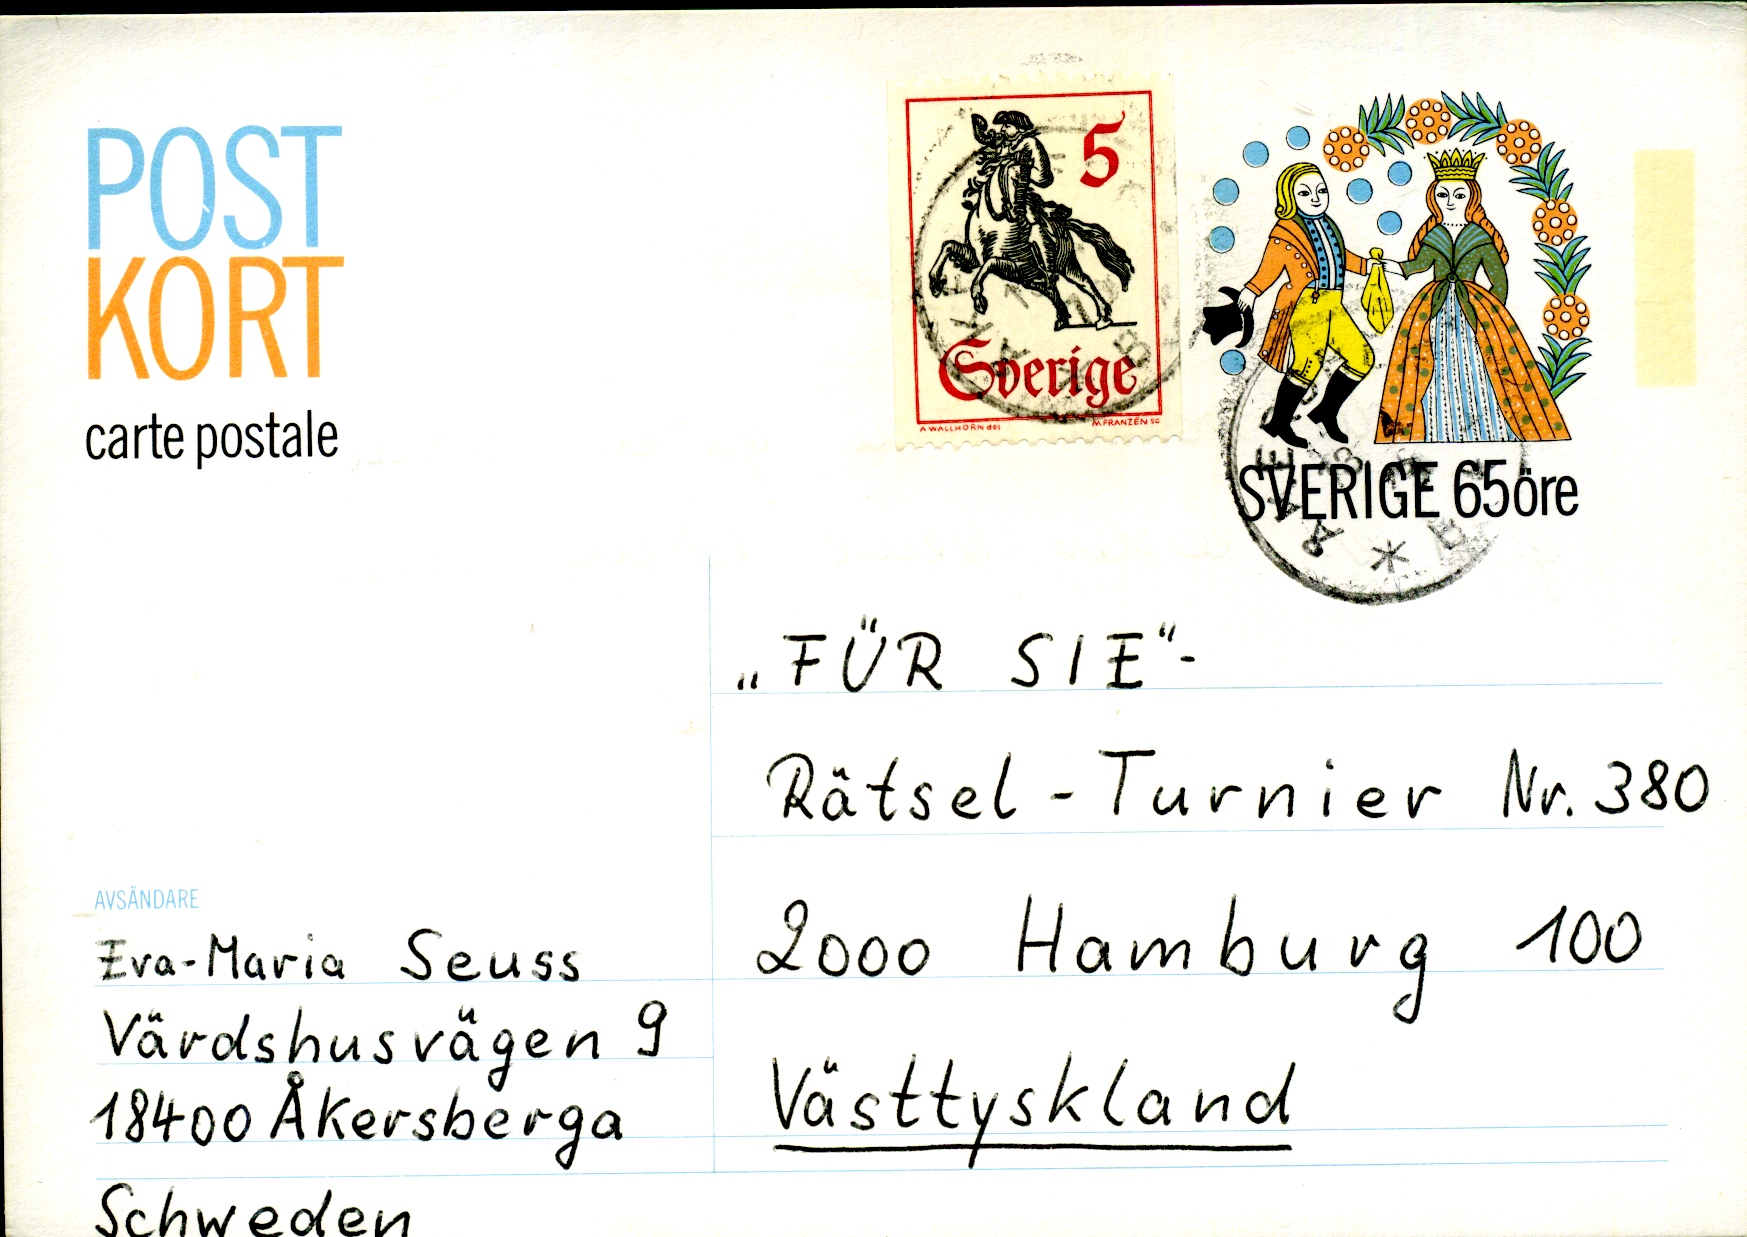 POST
KORT
carte postale
5
Sverige
A WALLHORN del
M FRANZÉN SC
SVERIGE 65öre
„FÜR SIE“-
Rätsel-Turnier Nr. 380
2000 Hamburg 100
Västtyskland
AVSÄNDARE
Eva-Maria Seuss
Värdshusvägen 9
18400 Åkersberga
Schweden